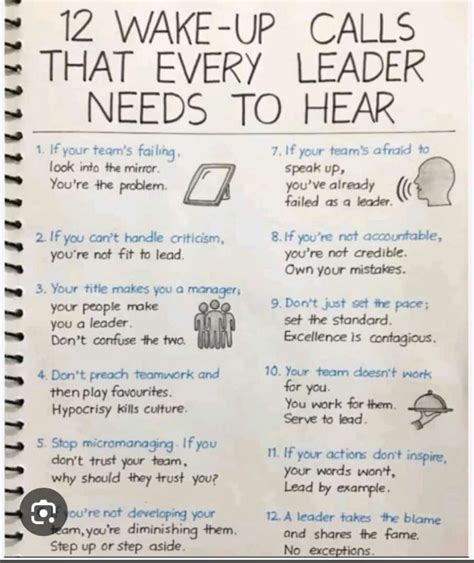 12 WAKE-UP CALLS
THAT EVERY LEADER
NEEDS TO HEAR
1. If your team's failing,
look into the mirror.
You're the problem.
2. If you can't handle criticism,
you're not fit to lead.
3. Your title makes you a manager;
your people make
you a leader.
Don't confuse the two.
4. Don't preach teamwork and
then play favourites.
Hypocrisy kills culture.
5. Stop micromanaging. If you
don't trust your team,
why should they trust you?
you're not developing your
team, you're diminishing them.
Step up or step aside.
7. If your team's afraid to
speak up,
you've already
failed as a leader.
8. If you're not accountable,
you're not credible.
Own your mistakes.
9. Don't just set the pace;
set the standard.
Excellence is contagious.
10. Your team doesn't work
for you.
You work for them.
Serve to lead.
11. If your actions don't inspire,
your words won't,
Lead by example.
12. A leader takes the blame
and shares the fame.
No exceptions.